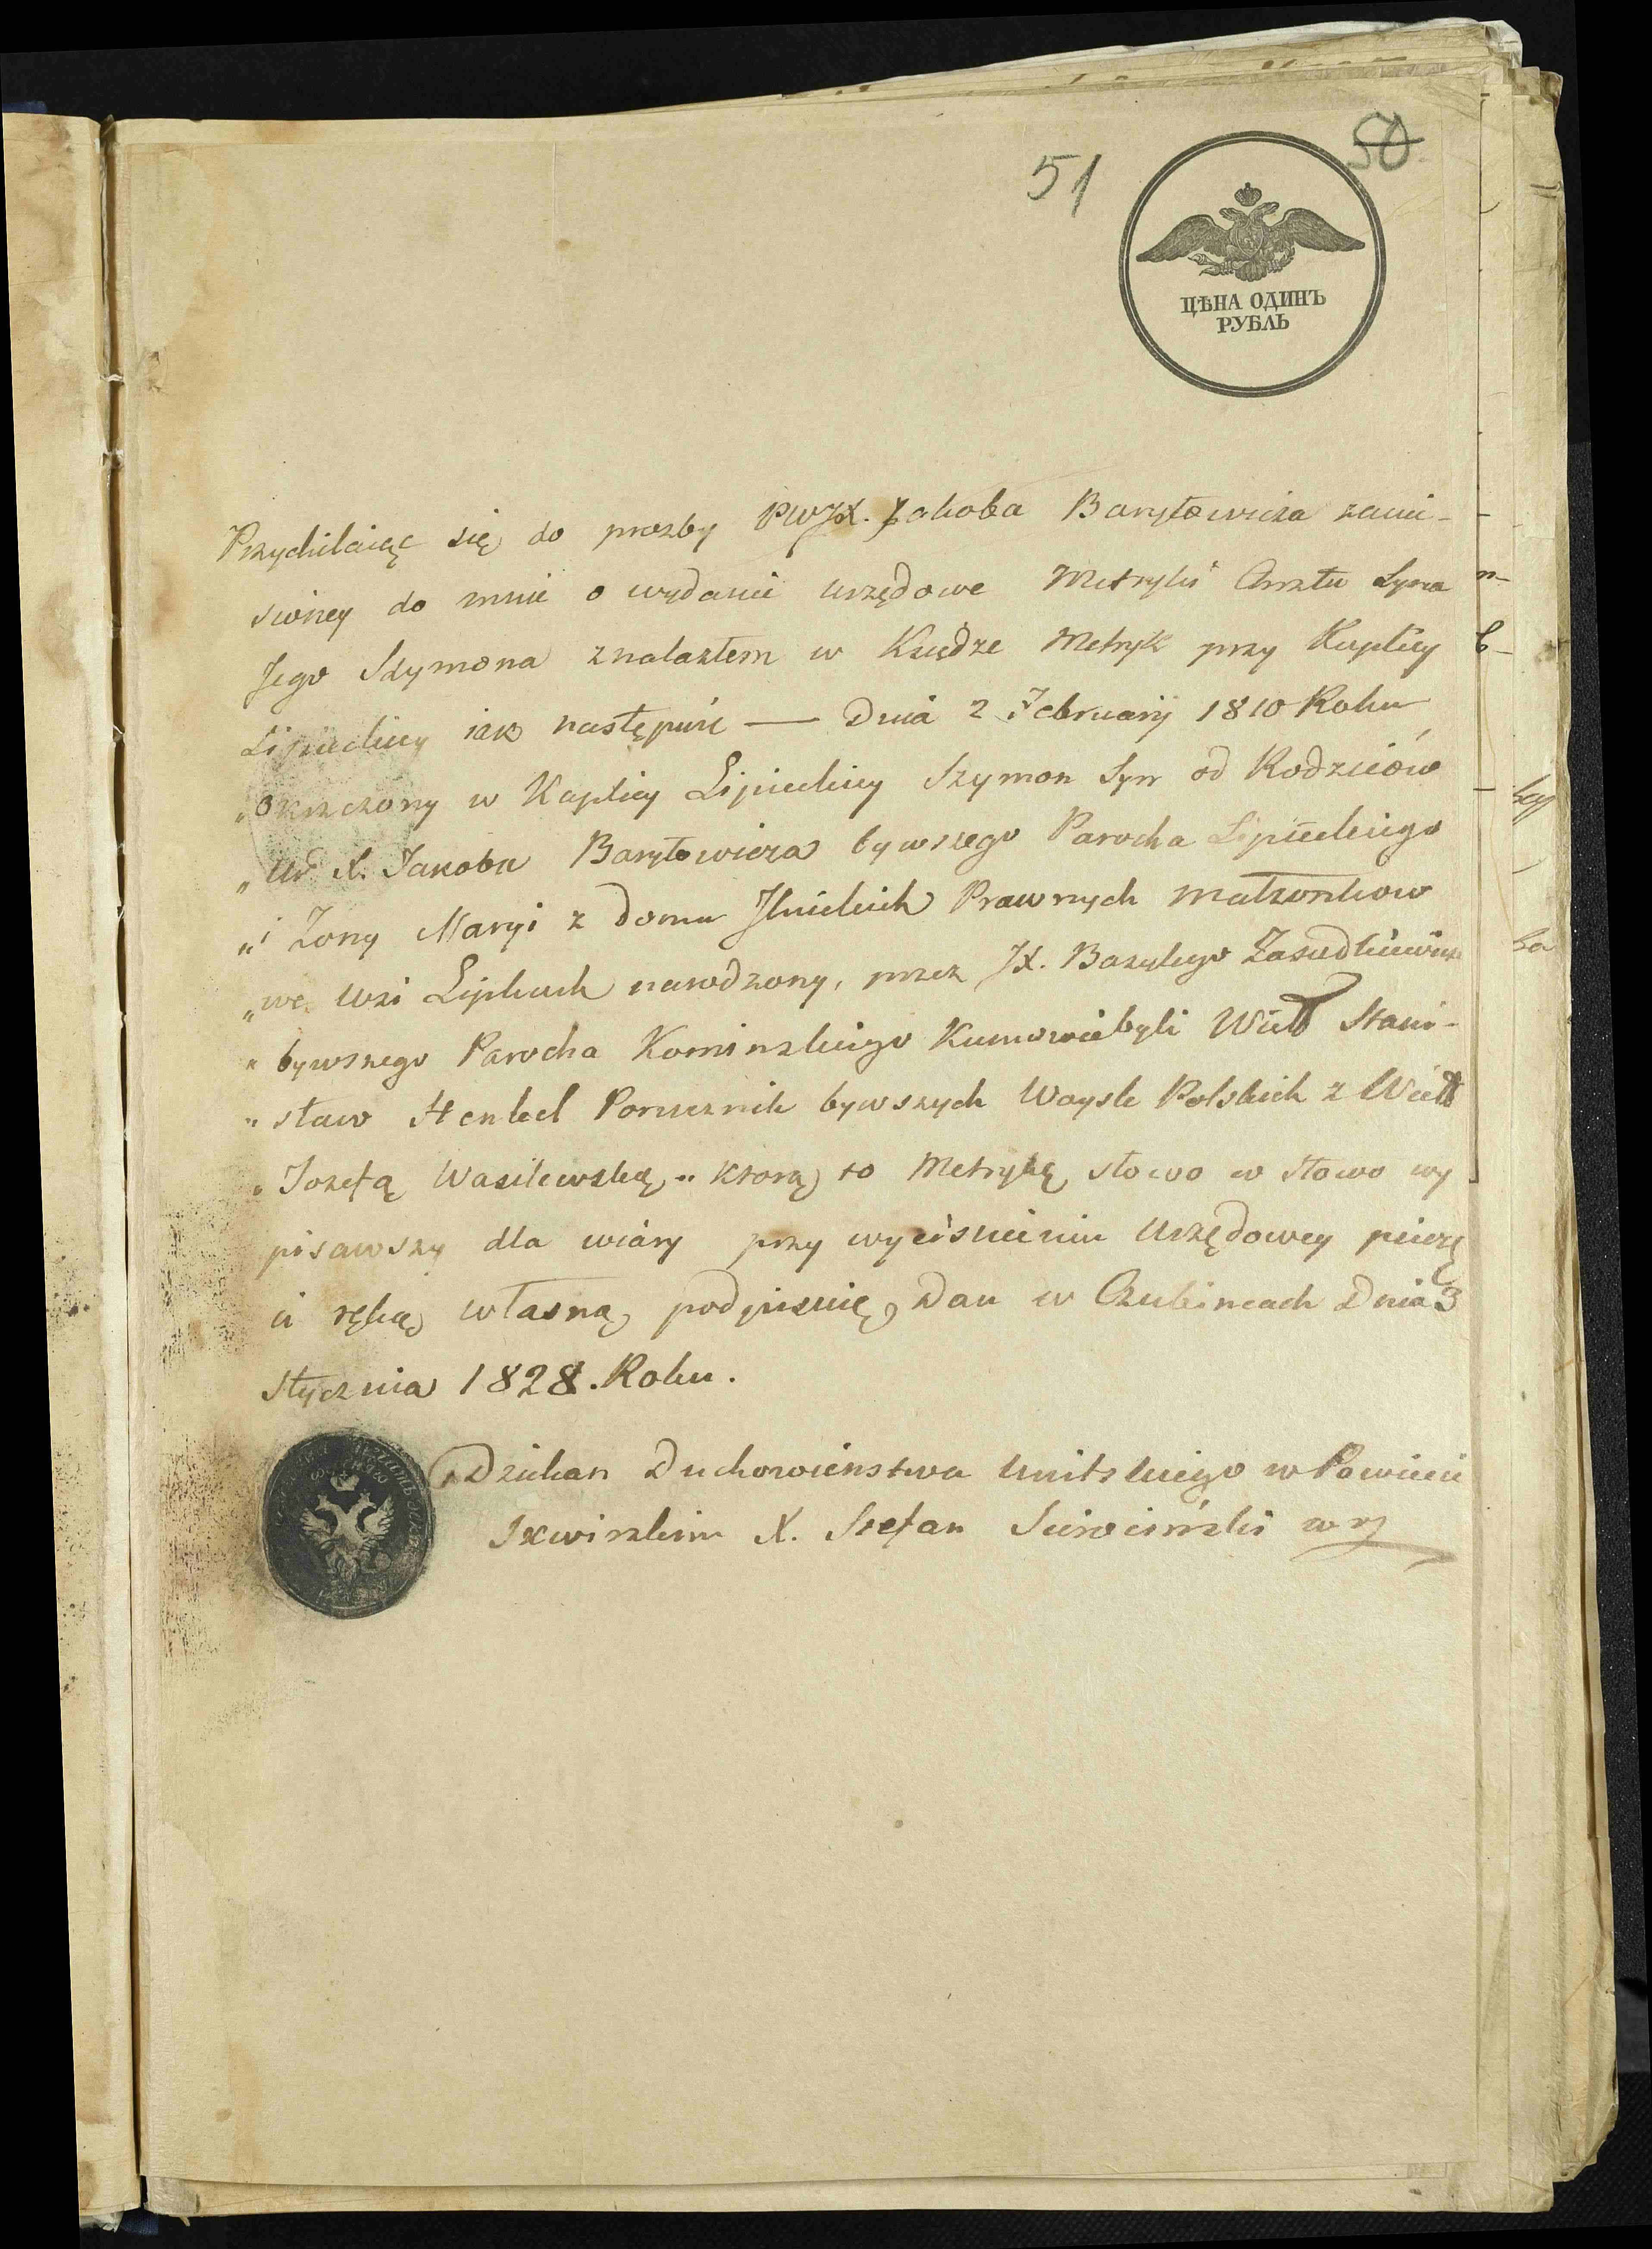 51
50
ЦѢНА ОДИНЪ
РУБЛЬ
Przychilaiąc się do prozby PWJX. Jakoba Baryłowicza zanie-
sioney do mnie o wydanie urzędowe Metryki Chrztu Syna
Jego Szymona znalazłem w Księdze Metryk przy Kaplicy
Lipieckiey iak następuie — Dnia 2 Februarij 1810 Roku
„Okrzczony w Kaplicy Lipieckiey Szymon Syn od Rodziców
„Ur X. Jakoba Baryłowicza bywszego Parocha Lipieckiego
„i Zony Maryi z Domu Ilnickich Prawnych Małzonkow
„we Wsi Lipkach narodzony, przez JX. Bazylego Zasudkiewicza
„bywszego Parocha Kominskiego Kumowie byli Wiel Stani-
„sław Henkel Porucznik bywszych Woysk Polskich z Wiel
„Jozefą Wasilewską„ Ktorą to Metrykę słowo w słowo wy
pisawszy dla wiary przy wyciśnieniu Urzędowey pieczę
ci ręką własną podpisuię, Dan w Czubincach Dnia 3
Stycznia 1828. Roku.
Dziekan Duchowieństwa Unitskiego w Powiecie
Skwirskim X. Stefan Sierociński wrz